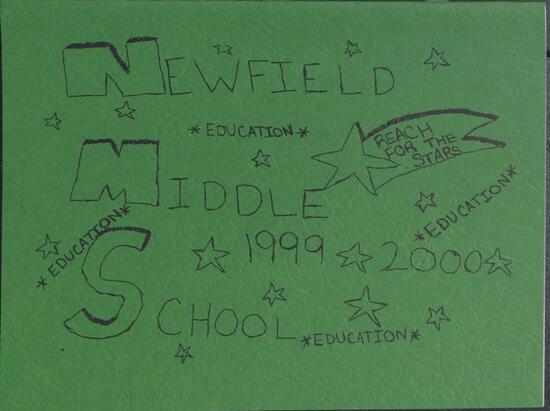 NEWFIELD
*EDUCATION*
REACH
FOR THE
STARS
MIDDLE
*EDUCATION*
*EDUCATION*
1999 2000
SCHOOL
*EDUCATION*